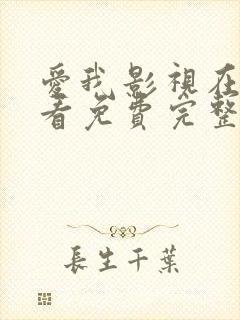 愛我影視在
看免費完整
長生千葉